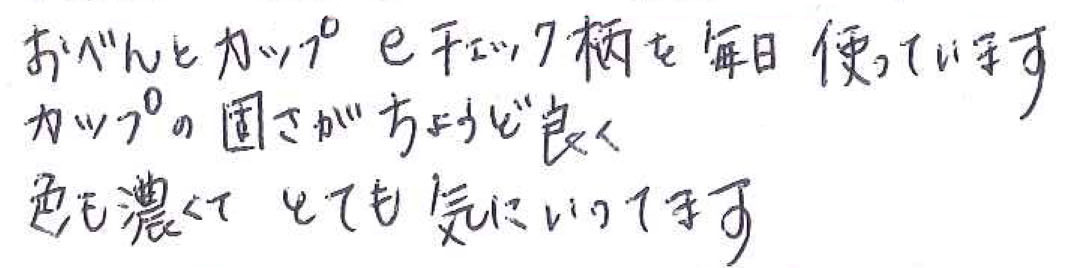 おべんとカップ eチェック柄を毎日使っています
カップの固さがちょうど良く
色も濃くてとても気にいってます